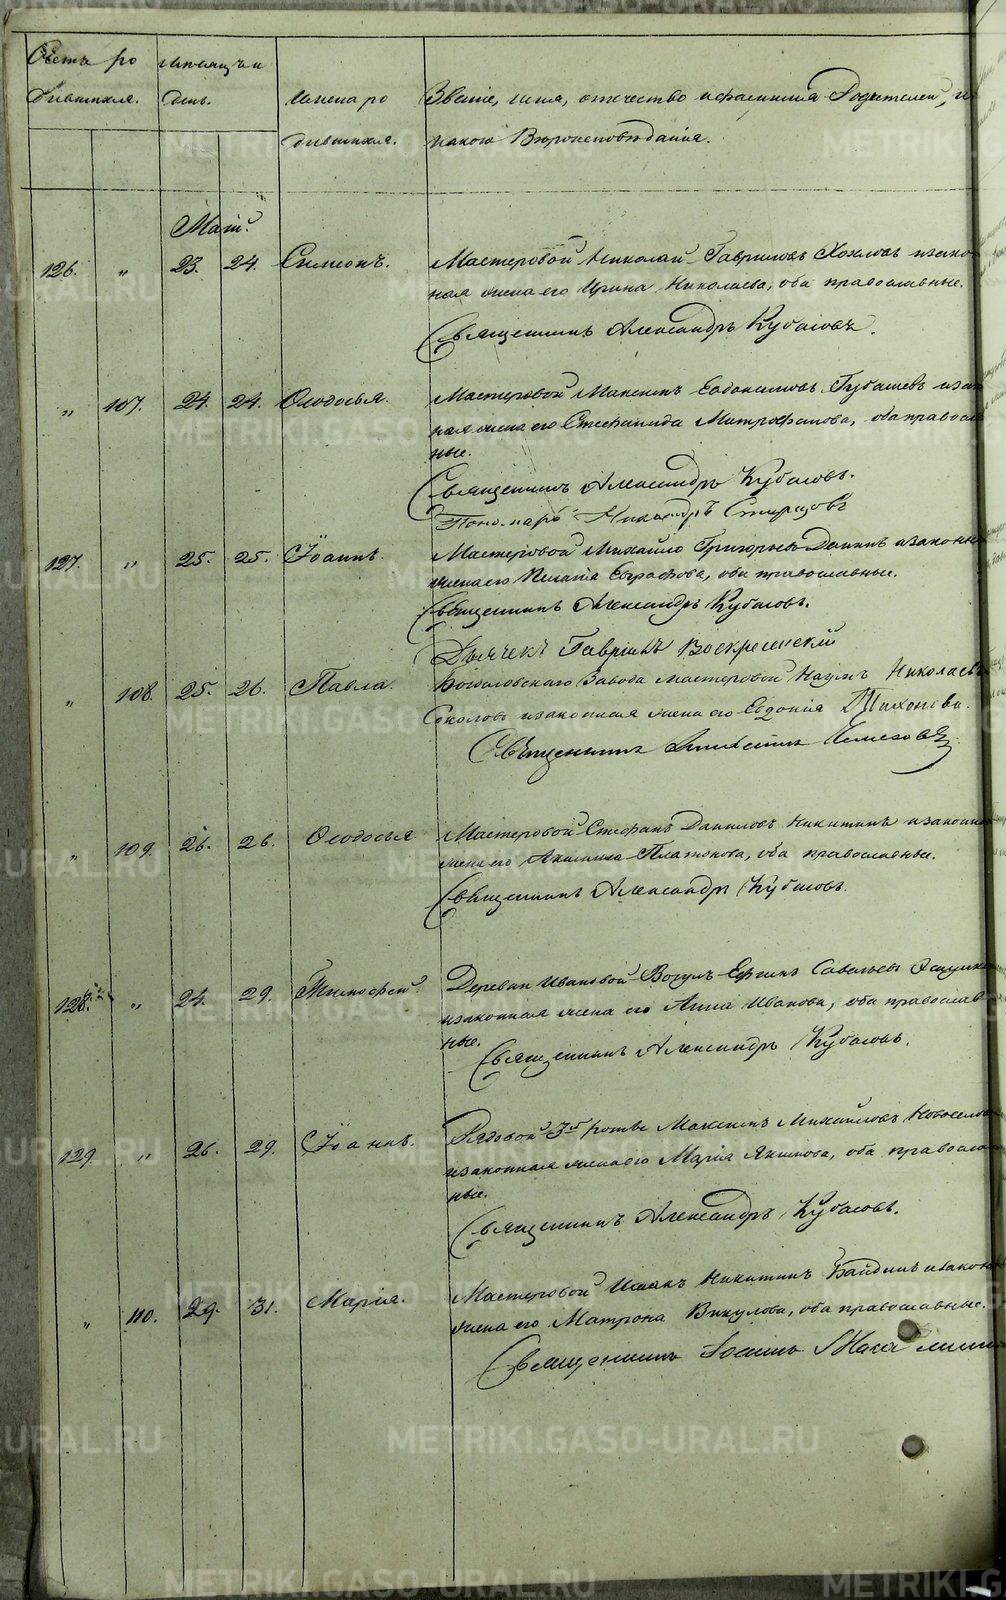 Счетъ ро мѣсяцъ и
дившихся. день. Имена ро Званіе, имя, отчество и фамилія Родителей, и
дившихся. какого Вѣроисповѣданія.
Маій.
126. " 23. 24. Симеонъ. Мастеровой Николай Гавриловъ Хохловъ и закон
ная жена его Ирина Николаева, оба православные.
Священникъ Александръ Кубасовъ.
" 107. 24. 24. Ѳеодосья. Мастеровой Максимъ Евдокимовъ и закон
ная жена его Стефанида Митрофанова, оба православ
ные.
Священникъ Александръ Кубасовъ.
Пономарь Никандръ
127. " 25. 25. Іоаннъ. Мастеровой Михайло Григорьевъ и законная
жена его Пелагія Евграфова, оба православные.
Священникъ Александръ Кубасовъ.
Дьячекъ Гавріилъ Воскресенскій
" 108. 25. 26. Павла. Богословскаго Завода мастеровой Наумъ Николаевъ
Соколовъ и законная жена его Евдокія Тихонова.
Священникъ
" 109. 26. 26. Ѳеодосья. Мастеровой Стефанъ Даниловъ Никитинъ и законная
жена его Акилина Платонова, оба православные.
Священникъ Александръ Кубасовъ.
128. " 24. 29. Тимофей. Деревни Ивановой Вогулъ Ефимъ Савельевъ
и законная жена его Анна Иванова, оба православ
ные.
Священникъ Александръ Кубасовъ.
129. " 26. 29. Іоаннъ. Рядовой 3й роты Максимъ Михайловъ Новоселовъ
и законная жена его Марія Якимова, оба православ
ные.
Священникъ Александръ Кубасовъ.
" 110. 29. 31. Марія. Мастеровой Исаакъ Никитинъ Байдинъ и законная
жена его Матрона Викулова, оба православные.
Священникъ Іоаннъ
METRIKI.GASO-URAL.RU